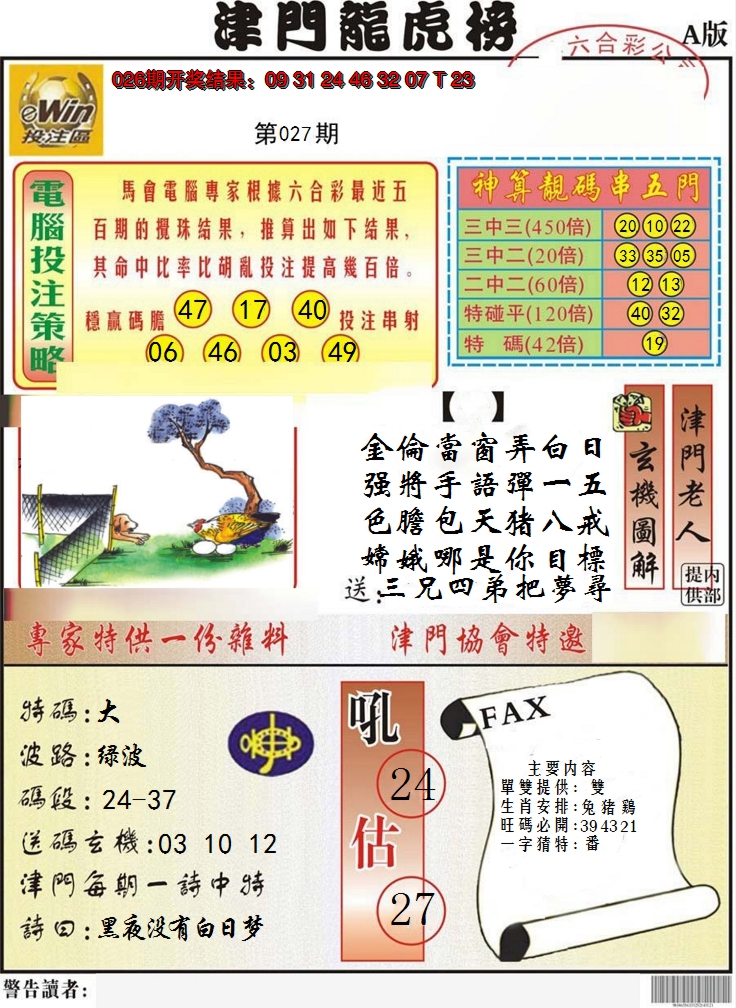 津門龍虎榜
A版
六合彩公
026期开奖结果：09 31 24 46 32 07 T 23
eWin
投注區
第027期
電腦投注策略
馬會電腦專家根據六合彩最近五
百期的攪珠结果，推算出如下结果，
其命中比率比胡亂投注提高幾百倍。
穩贏碼膽 47 17 40 投注串射
06 46 03 49
神算靚碼串五門
三中三(450倍) 20 10 22
三中二(20倍) 33 35 05
二中二(60倍) 12 13
特碰平(120倍) 40 32
特 碼(42倍) 19
【 】
金倫當窗弄白日
强將手語彈一五
色膽包天猪八戒
嫦娥哪是你目標
送：三兄四弟把夢尋
玄機圖解
津門老人
内部提供
專家特供一份雜料
津門協會特邀
特碼:大
波路:绿波
碼段:24-37
送碼玄機:03 10 12
津門每期一詩中特
詩曰:黑夜没有白日梦
吼
24
估
27
FAX
主要内容
單雙提供：雙
生肖安排:兔猪鷄
旺碼必開:394321
一字猜特:番
警告讀者：